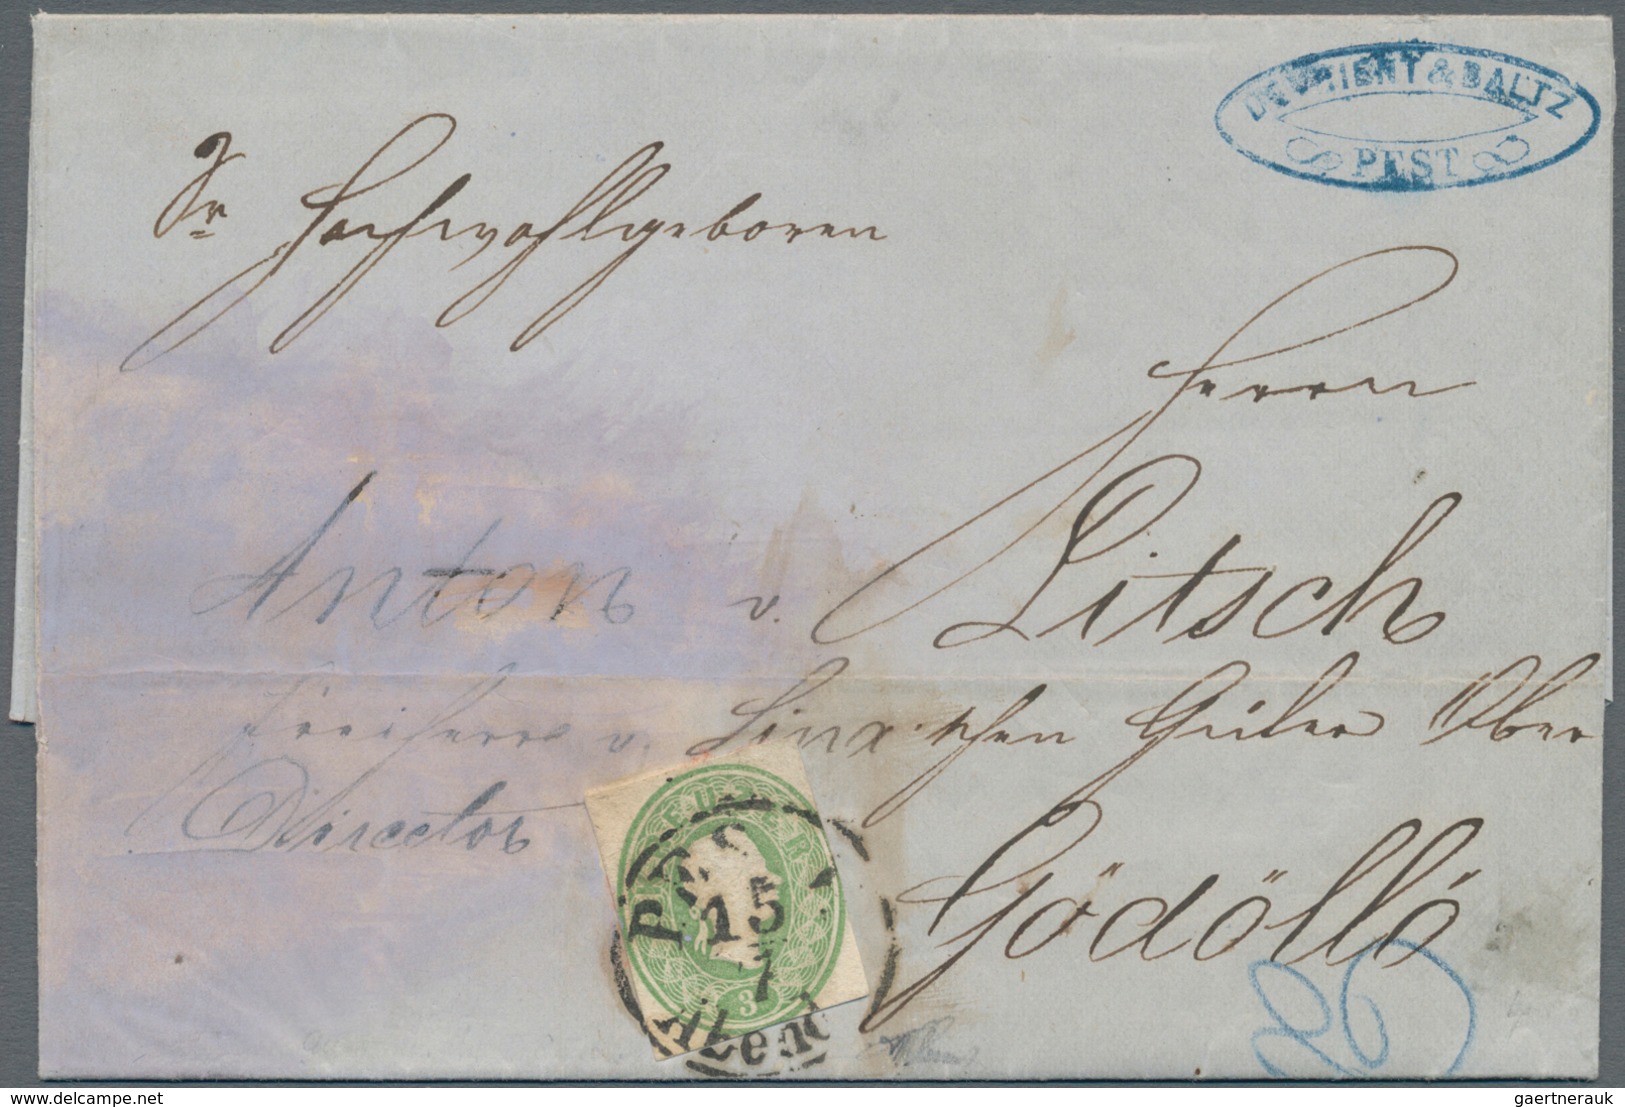 DEVRIENT & BALTZ
PEST
Sr Hochwohlgeboren
Herrn
Anton v. Litsch
Freiherr v. Sina'schen Güter Ober
Director
Gödöllö
PEST
15
7
3
Abends
gaertnerauk